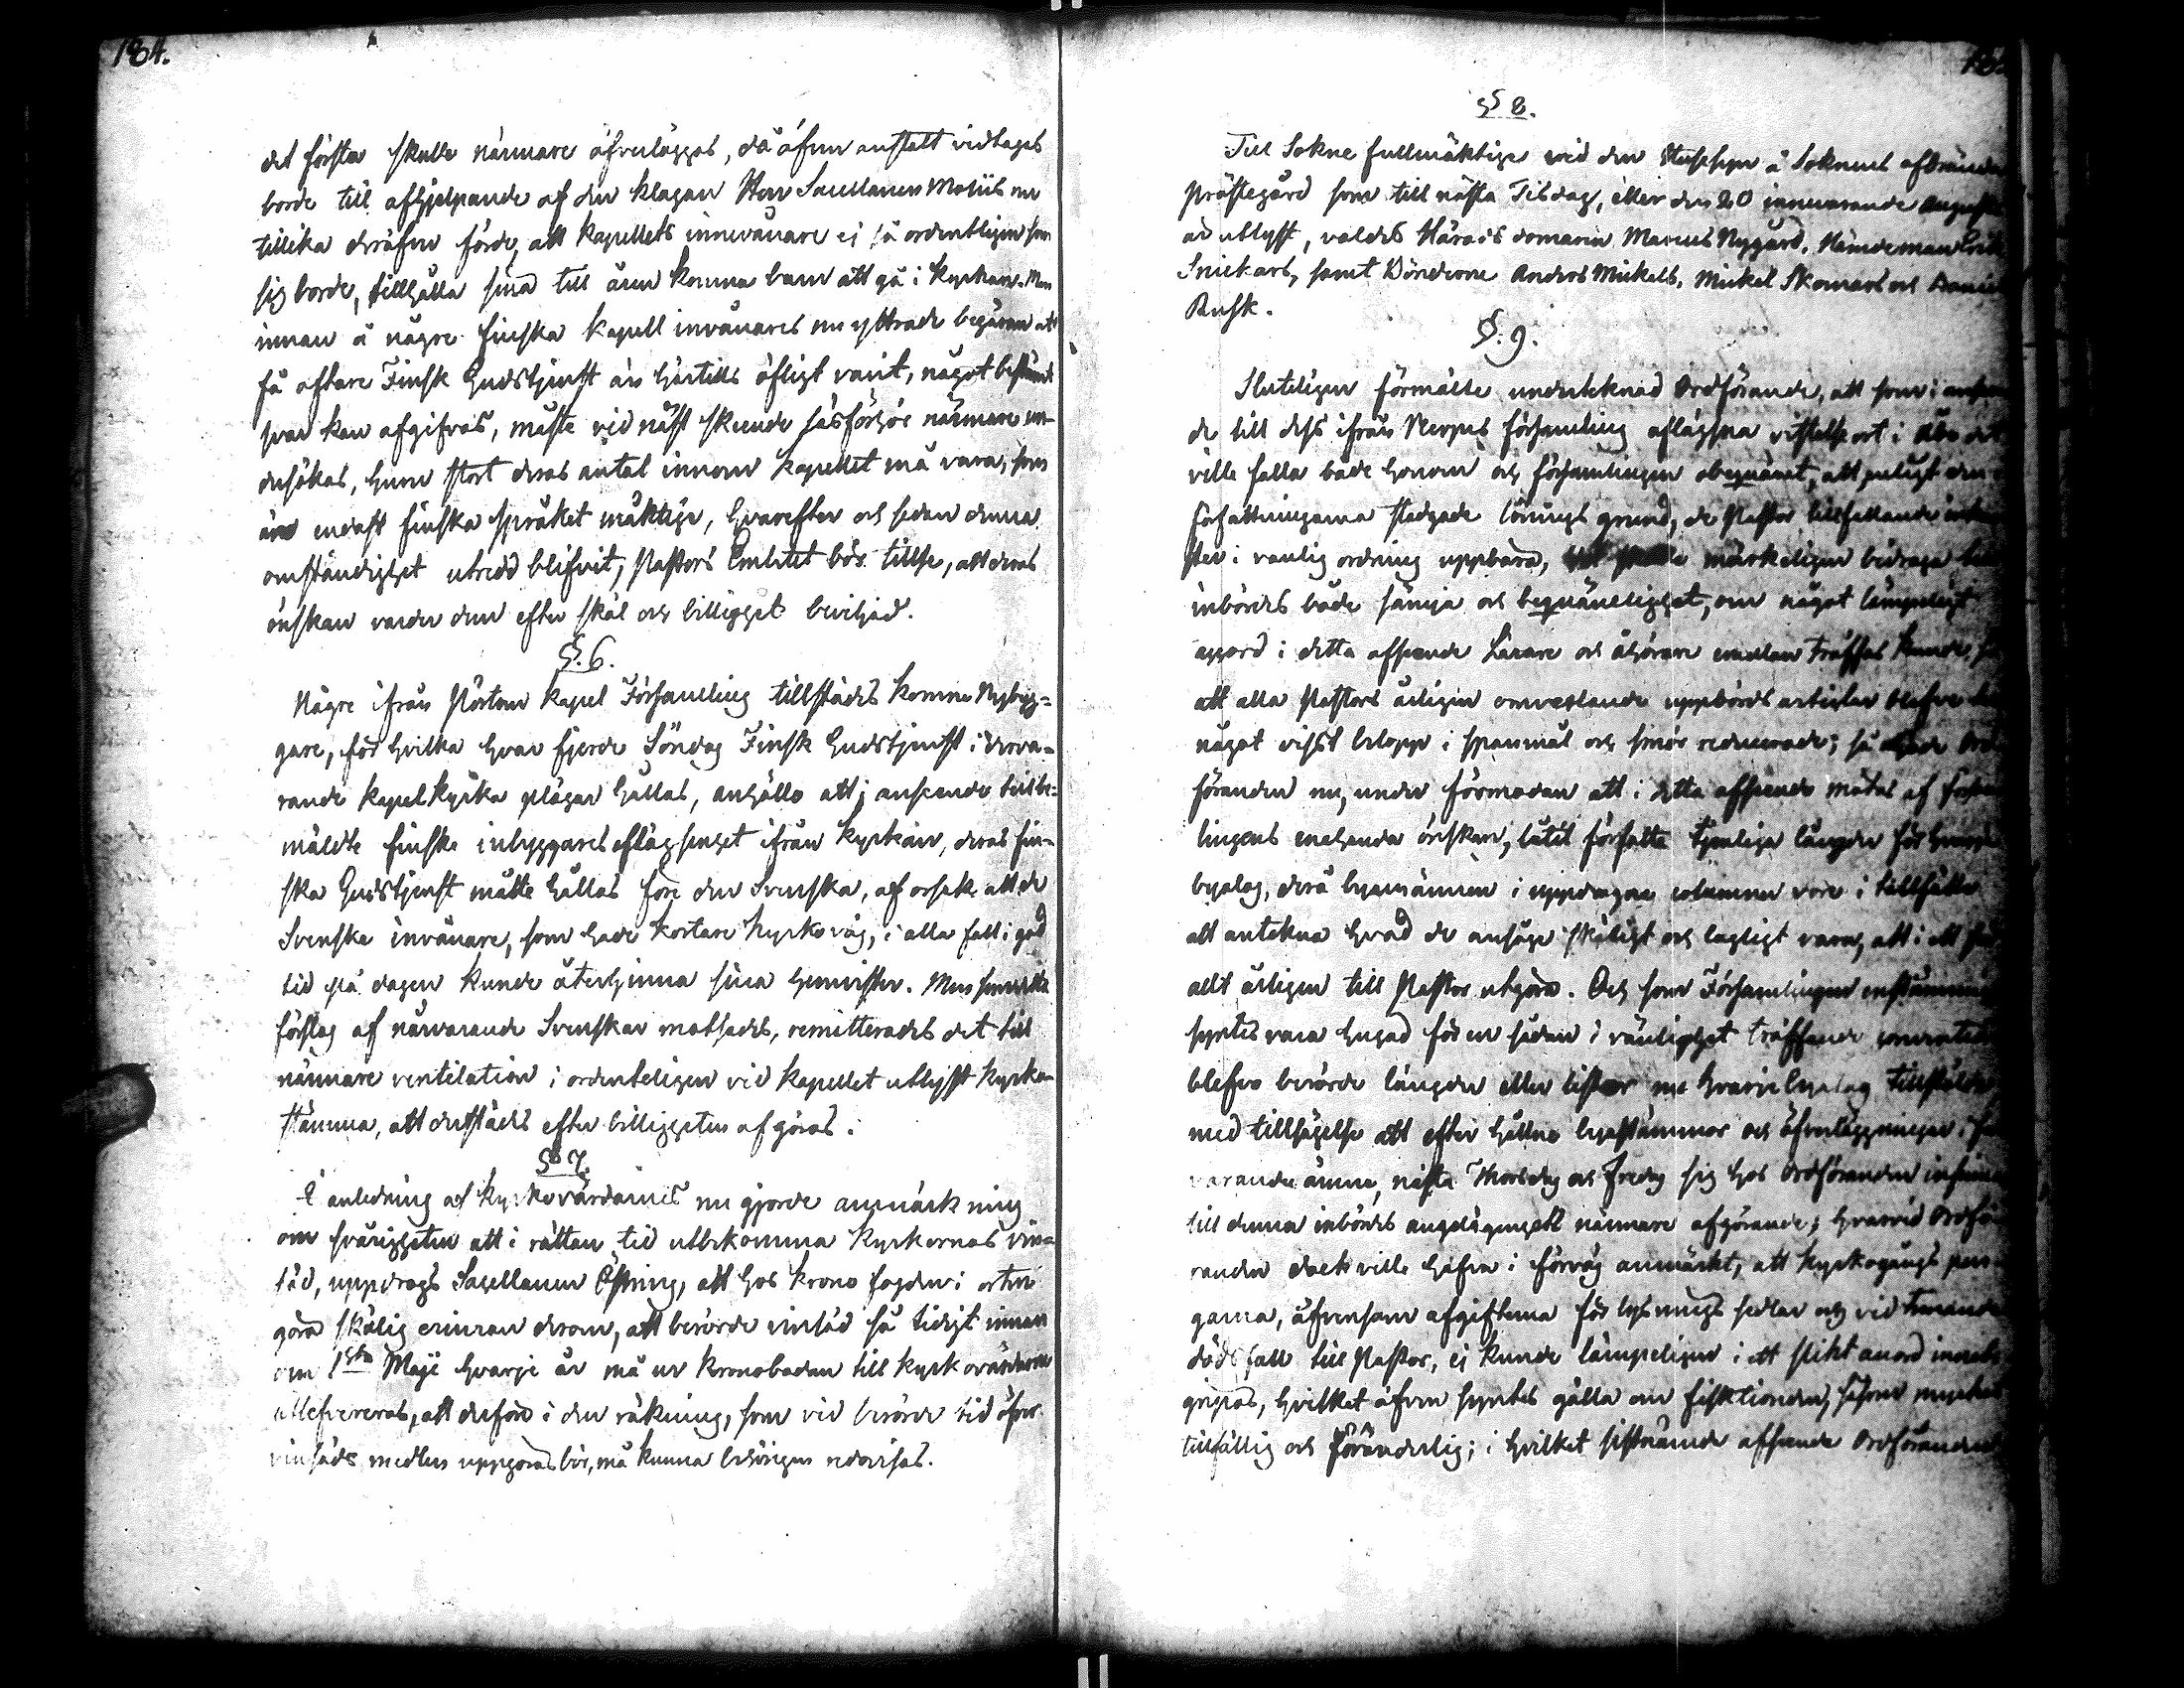 184.
det första skulle närmare öfverläggas, då äfven anstalt vidtagas
borde till afhjelpande af den klagan Herr Sacellanen Matiis nu
tillika deröfver förde, att kapellets innevånare ej så ordentligen som
sig borde, tillhålla sina till åren komna barn att gå i kyrkan. Men
innan å någre finska kapell invånares nu yttrade begäran att
få oftare Finsk Gudstjenst än härtills öfligt varit, något bestämdt
svar kan afgifvas, måste vid näst skeende läsförhör närmare un-
dersökas, huru stort deras antal innom kapellet må vara, som
äro endast finska språket mäktige, hvarefter och sedan denna
omständighet utredd blifvit, Pastors Embetet bör tillse, att deras
önskan varder dem efter skäl och billighet beviljad.
§. 6.
Någre ifrån Pörtom kapel Församling tillstädes komne Nybyg-
gare, för hvilka hvar fjerde Söndag Finsk Gudstjenst i derva-
rande kapelkyrka plägar hållas, anhöllo att i anseende till be-
mäldte finske inbyggares aflägsenhet ifrån kyrkan, deras fin-
ska Gudstjenst måtte hållas före den Svenska, af orsak att de
Svenske invånare, som hade kortare kyrkoväg, i alla fall i god
tid på dagen kunde återhinna sina hemvister. Men som detta
förslag af närvarande Svenskar motsades, remitterades det till
närmare ventilation i ordenteligen vid kapellet utlyst kyrko-
stämma, att derstädes efter billigheten afgöras.
§ 7.
I anledning af kyrkovärdarnes nu gjorde anmärkning
om svårigheten att i rättan tid utbekomma kyrkornas vin-
säd, uppdrogs Sacellanen Estning, att hos krono fogden i orten
göra skälig erinran derom, att berörde vinsäd så tidigt innan
om 1sta Maji hvarje år må ur kronobodan till kyrkovärdarne
utlefvereras, att derföre i den räkning, som vid berörde tid öfver
vinsäds medlen uppgöras bör, må kunna behörigen redovisas.
§ 8.
Till Sokne fullmäktige wid den Husesyn å Soknens afbrända
Prästegård som till nästa Tisdag, eller den 20 innevarande Augusti
är utlyst, valdes Härads domaren Marcus Nygård, Nämdeman Erik
Snickars, samt Bönderne Anders Mickels, Mickel Skomars och Daniel
Rusk.
§. 9.
Sluteligen förmälte undertecknad Ordförande, att som i anseen
de till dess ifrån Nerpes församling aflägsna vistelse ort i Åbo det
ville falla både honom och församlingen obequämt, att enligt den
författningarna stadgade lönings grund, de Pastor tillfallande inkom
ster i vanlig ordning uppbära, märkeligen bidraga till
inbördes både sämja och bequämlighet, om något lämpeligt
accord i detta afseende Lärare och åhörare emellan träffas kunde, så
att alla Pastors årligen omvexlande uppbörds artiklar blefve till
något visst belopp i spanmål och smör reducerade; så hade Ord-
föranden nu, under förmodan att i detta afseende mötas af försam
lingens enahanda önskan, låtit författa tjenliga längder för hvarje
byalag, derå byamännen i uppdragne columner vore i tillfälle
att anteckna hvad de ansåge skäligt och lagligt vara, att i ett för
allt årligen till Pastor utgöra. Och som Församlingen enstämmigt
syntes vara hugad för en sådan i vänlighet träffande convention
blefvo berörde längder eller listor nu hvarje byalag tillstäldte,
med tillsägelse att efter hållne byastämmor och öfverläggningar i före
varande ämne, nästa Thorsdag och Fredag sig hos Ordföranden infinna
till denna inbördes angelägenhets närmare afgörande; hvarvid Ordfö-
randen dock ville hafva i förväg anmärkt, att kyrkogångs pen-
garna, äfvensom afgifterna för lysnings sedlar och vid timande
dödsfall till Pastor, ej kunde lämpeligen i ett slikt accord innebe
gripas, hvilket äfven syntes gälla om fisktionden, såsom mycket
tillfällig och föränderlig; i hvilket sistnämde afseende Ordföranden